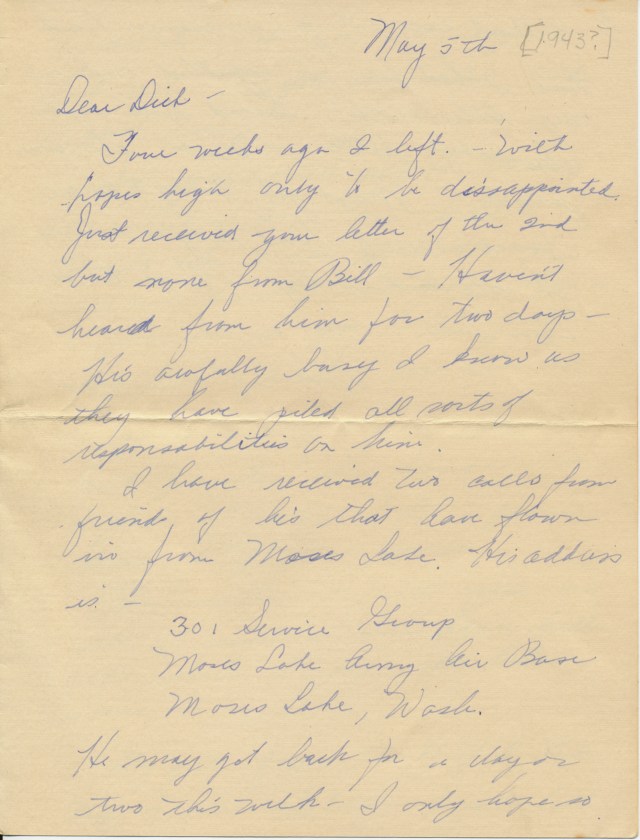 May 5th [1943?]
Dear Dick -
Four weeks ago I left. - With
hopes high only to be dissappointed.
Just received your letter of the 2nd
but none from Bill - Haven't
heard from him for two days -
His awfully busy I know as
they have piled all sorts of
responsabilities on him.
I have received two calls from
friends of his that have flown
in from Moses Lake. His address
is. -
301 Service Group
Moses Lake Army Air Base
Moses Lake, Wash.
He may get back for a day or
two this week - I only hope so